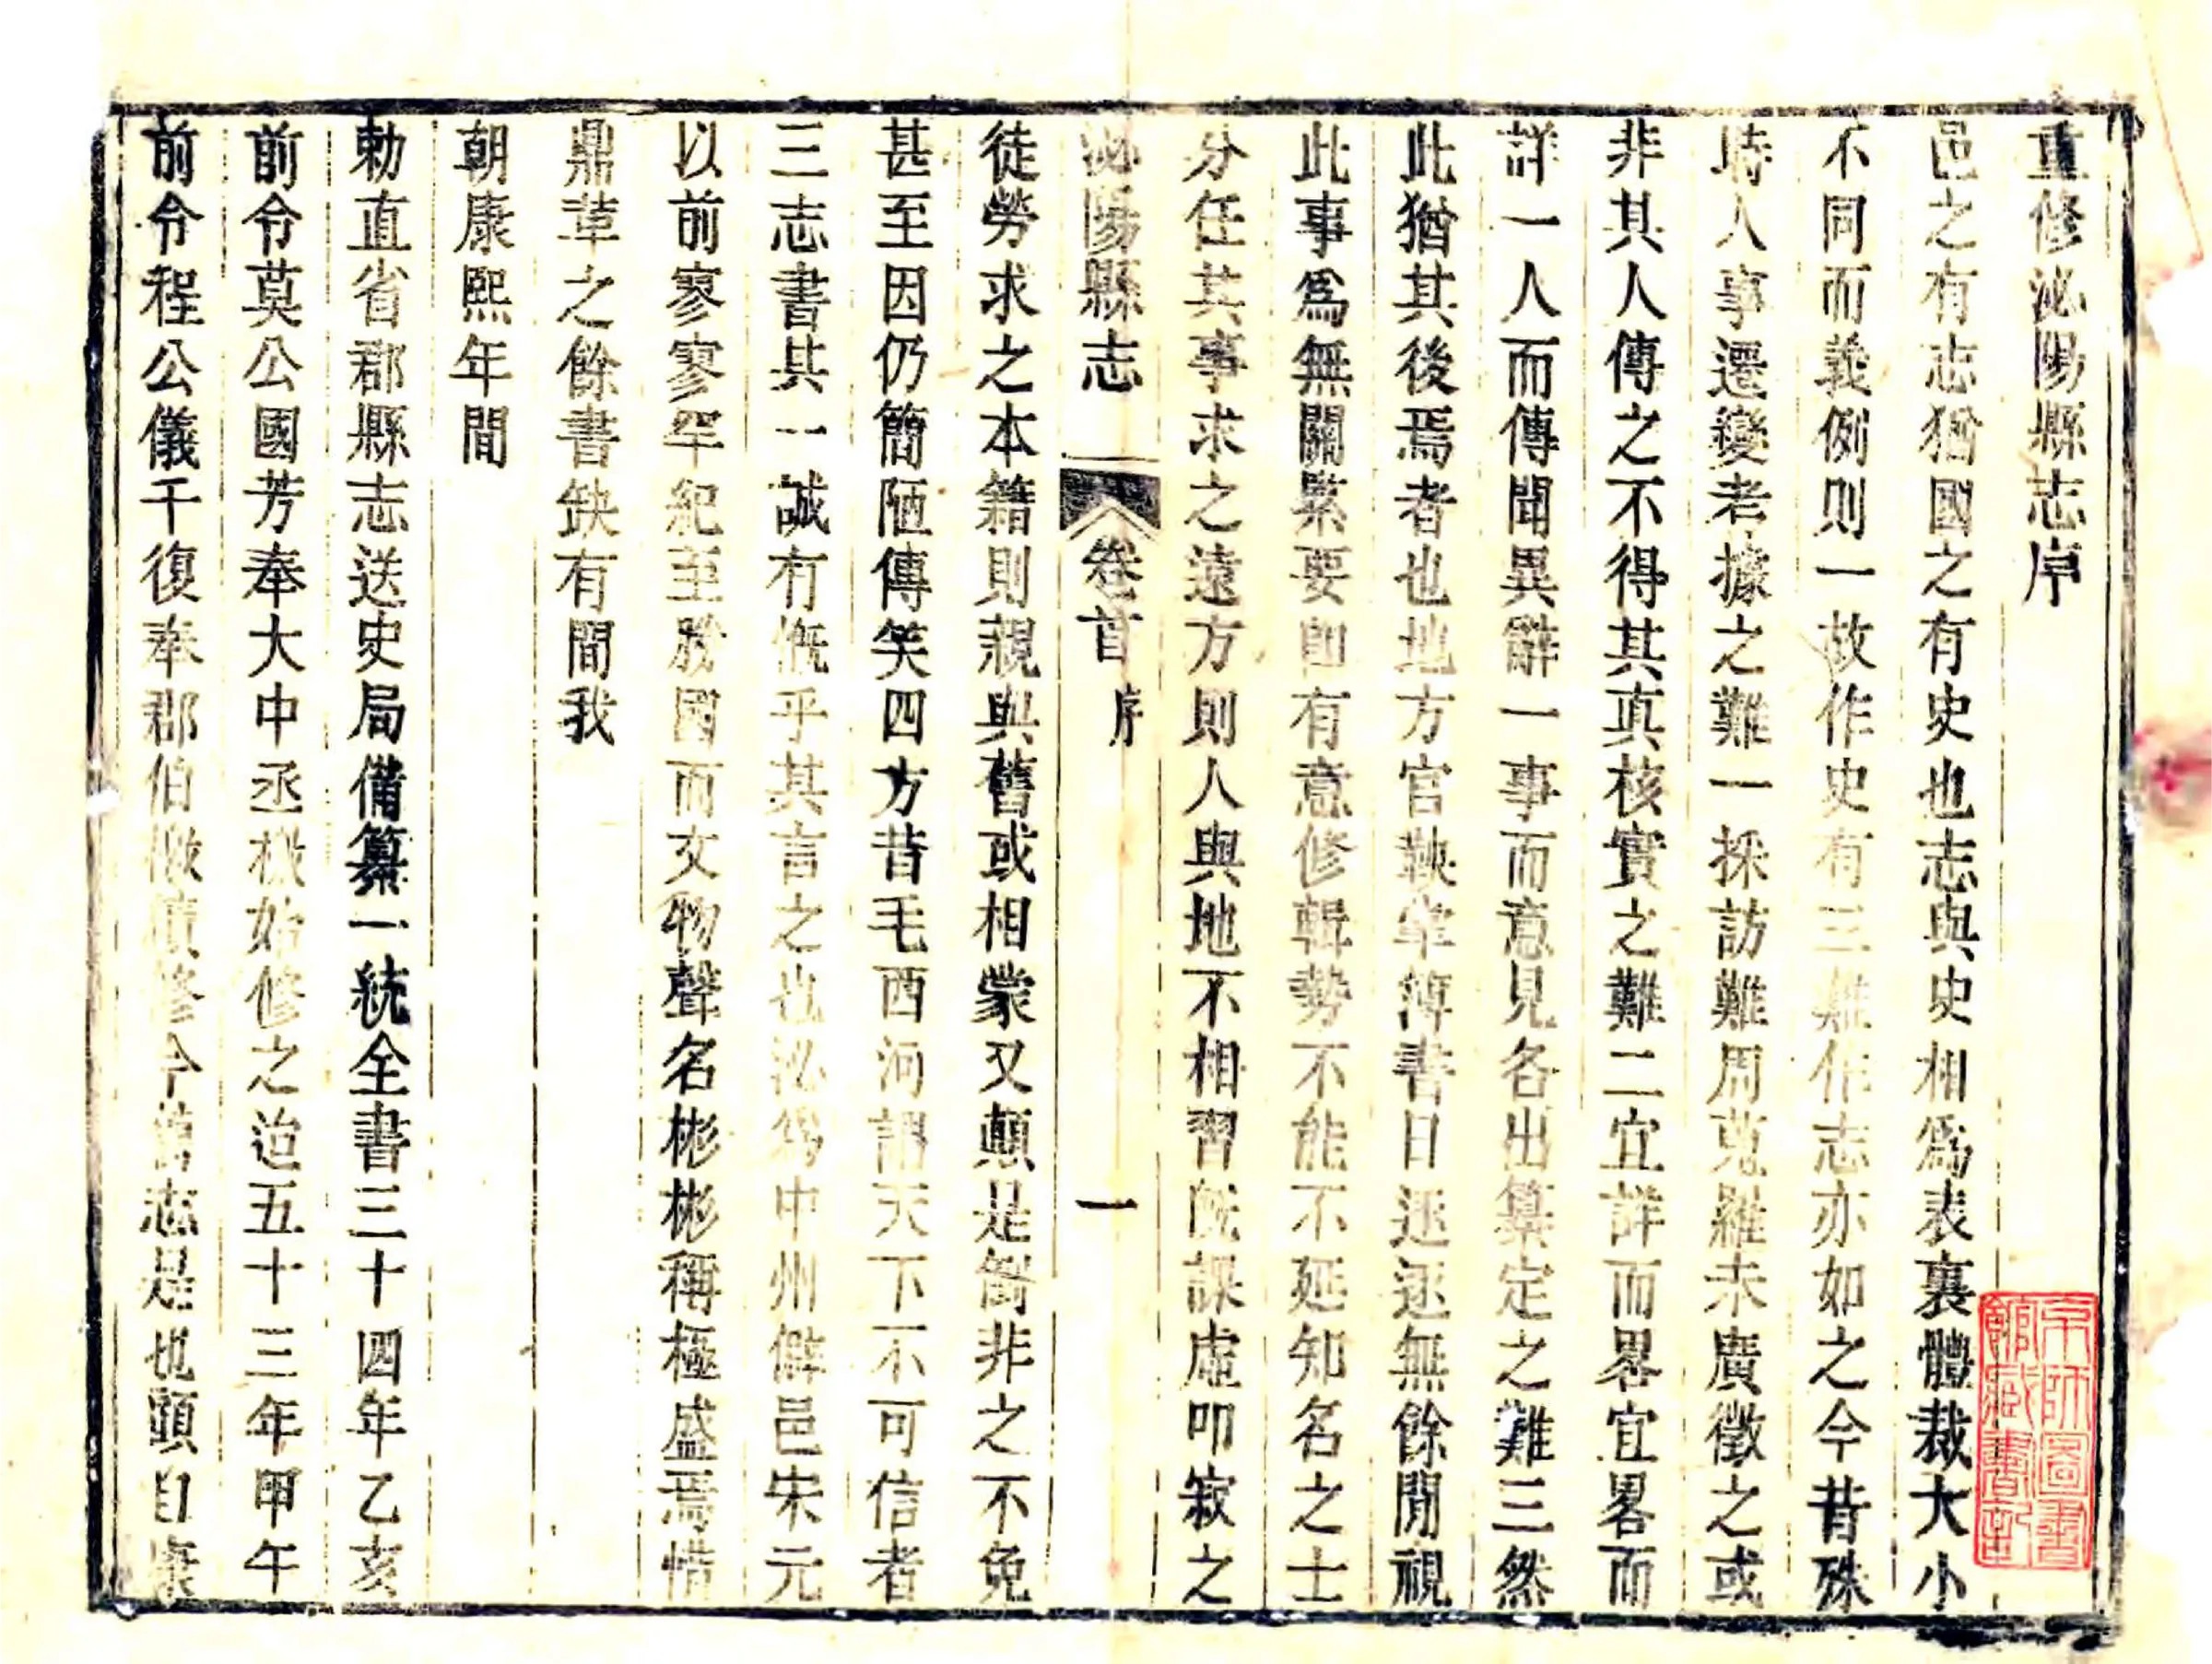 重修泌陽縣志序
邑之有志猶國之有史也志與史相爲表裏體裁大小
不同而義例則一故作史有三難作志亦如之今昔殊
時人事遷變考據之難一採訪難周蒐羅未廣徵之或
非其人傳之不得其真核實之難二宜詳而畧宜畧而
詳一人而傳聞異辭一事而意見各出纂定之難三然
此猶其後焉者也地方官鞅掌簿書日逐逐無餘閒視
此事爲無關緊要卽有意修輯勢不能不延知名之士
分任其事求之遠方則人與地不相習旣課虛叩寂之
泌陽縣志 卷首 序 一
徒勞求之本籍則親與舊或相蒙又顛是倒非之不免
甚至因仍簡陋傳笑四方昔毛西河謂天下不可信者
三志書其一誠有慨乎其言之也泌爲中州僻邑宋元
以前寥寥罕紀至勝國而文物聲名彬彬稱極盛焉惜
鼎革之餘書缺有間我
朝康熙年間
勅直省郡縣志送史局備纂一統全書三十四年乙亥
前令莫公國芳奉大中丞檄始修之迨五十三年甲午
前令程公儀千復奉郡伯檄續修今舊志是也顧自康
京師圖書
館藏書記